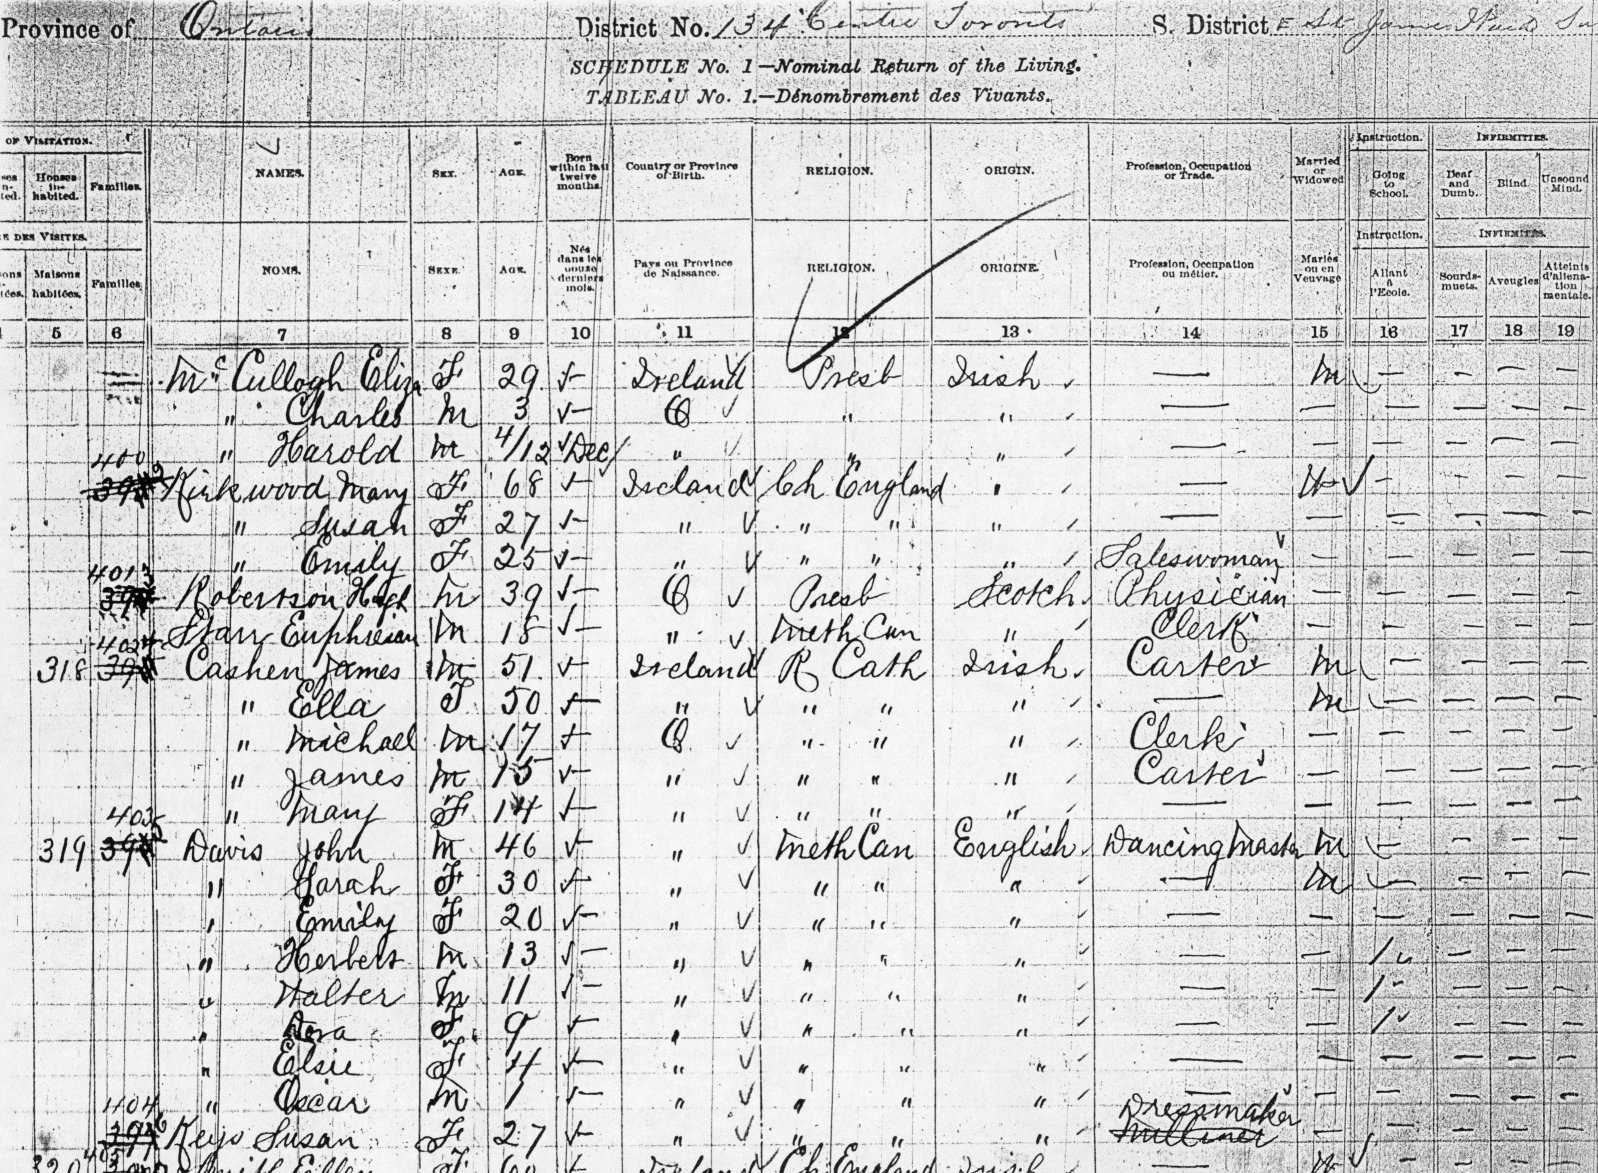 Province of Ontario District No. 134 Centre Toronto S. District E St James Ward
SCHEDULE No. 1—Nominal Return of the Living.
TABLEAU No. 1.—Dénombrement des Vivants.
OF VISITATION. Instruction. INFIRMITIES.
Houses in-habited. Families. NAMES. SEX. AGE. Born within last twelve months. Country or Province of Birth. RELIGION. ORIGIN. Profession, Occupation or Trade. Married or Widowed Going to School. Deaf and Dumb. Blind. Unsound Mind.
DES VISITES. Instruction. INFIRMITÉS.
Maisons habitées. Familles NOMS. SEXE. AGE. Nés dans les douze derniers mois. Pays ou Province de Naissance. RELIGION. ORIGINE. Profession, Occupation ou métier. Mariés ou en Veuvage Allant à l'Ecole. Sourds-muets. Aveugles Atteints d'aliéna-tion mentale.
5 6 7 8 9 10 11 12 13 14 15 16 17 18 19
McCullogh Eliza F 29 ✓— Ireland ✓ Presb Irish — M — — — —
" Charles M 3 ✓— O ✓ " " — — — — — —
" Harold M 4/12 ✓Dec " ✓ " " — — — — — —
400 Kirkwood Mary F 68 ✓— Ireland ✓ Ch England " — W ✓ — — — —
" Susan F 27 ✓— " ✓ " " " — — — — — —
" Emily F 25 ✓— " ✓ " " " Saleswoman — — — — —
401 Robertson Hugh M 39 ✓— O ✓ Presb Scotch Physician — — — — —
402 Starr M 18 ✓— " ✓ Meth Can " Clerk — — — — —
318 Cashen James M 51 ✓— Ireland ✓ R Cath Irish Carter M — — — —
" Ella F 50 ✓— " ✓ " " " — M — — — —
" Michael M 17 ✓— O ✓ " " " Clerk — — — — —
" James M 15 ✓— " ✓ " " " Carter — — — — —
" Mary F 14 ✓— " ✓ " " " — — — — — —
319 403 Davis John M 46 ✓— " ✓ Meth Can English Dancing Master M — — — —
" Sarah F 30 ✓— " ✓ " " " — M — — — —
" Emily F 20 ✓— " ✓ " " " — — — — — —
" Herbert M 13 ✓— " ✓ " " " — — 1 — — —
" Walter M 11 ✓— " ✓ " " " — — 1 — — —
" Dora F 9 ✓— " ✓ " " " — — 1 — — —
" Elsie F 4 ✓— " ✓ " " " — — — — — —
" Oscar M 1 ✓— " ✓ " " " — — — — — —
404 Keys Susan F 27 ✓— " ✓ " " " Dressmaker Milliner — — — — —
320 Smith Ellen F 60 Ireland Ch England Irish — W